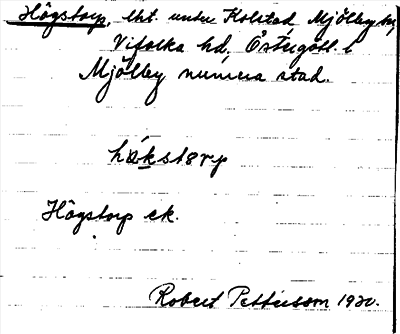 Högstorp, lht. under Kolstad Mjölby sn,
Vifolka hd, Östergötl. l
Mjölby numera stad.
Högstorp ek.
Robert Pettersson 1920.